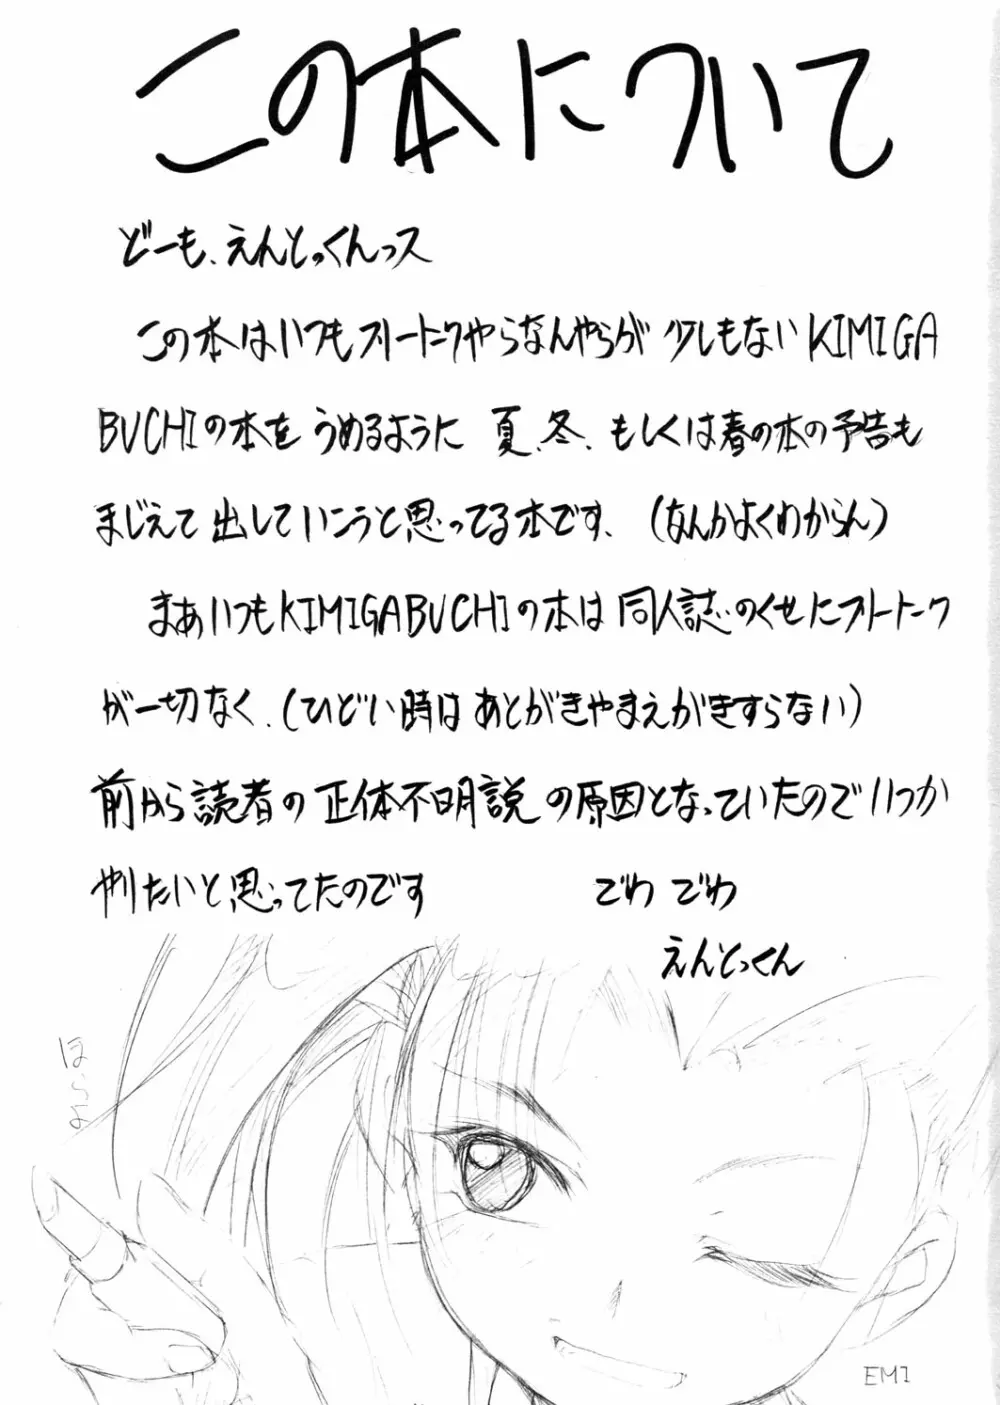 この本について
どーも、えんとっくんっス
この本はいつもフリートークやらなんやらが少しもないKIMIGA
BUCHIの本をうめるように夏、冬、もしくは春の本の予告も
まじえて出していこうと思ってる本です、(なんかよくわからん)
まあいつもKIMIGABUCHIの本は同人誌のくせにフリートーク
が一切なく、(ひどい時はあとがきやまえがきすらない)
前から読者の正体不明説の原因となっていたのでいつか
やりたいと思ってたのです でわでわ
えんとっくん
EMI